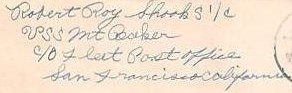 Robert Roy Shook S 1/c
USS Mt Baker
C/O Fleet Post office
San Francisco California